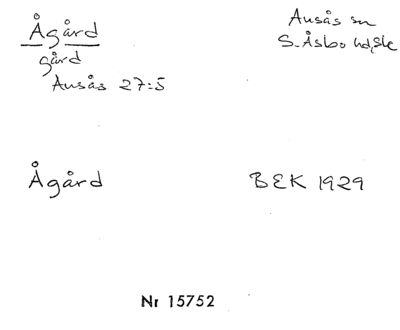 Ågård
gård
Ausås 27:5
Ausås sn
S. Åsbo hd, Sk
Ågård
BEK 1929
Nr 15752